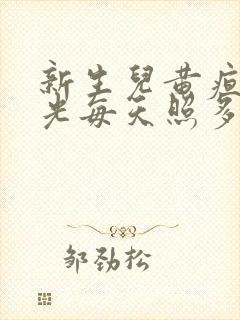 新生兒黄疸
光每天照多
邹劲松